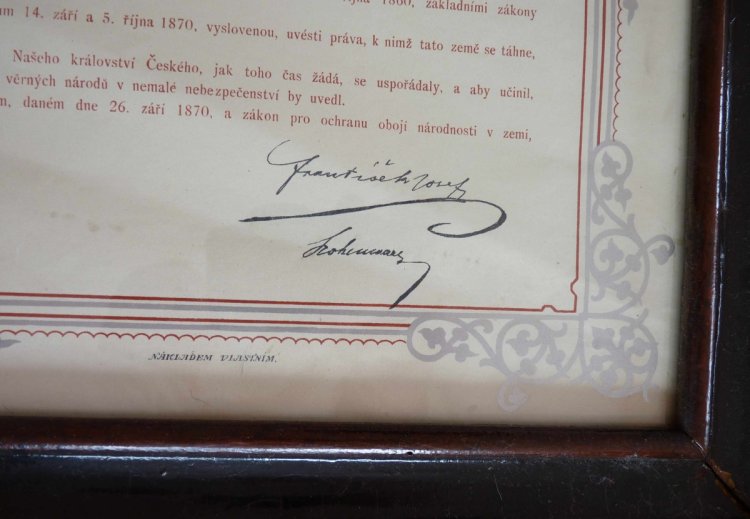 října 1860, základními zákony
14. září a 5. října 1870, vyslovenou, uvésti práva, k nimž tato země se táhne,
Našeho království Českého, jak toho čas žádá, se uspořádaly, a aby učinil,
věrných národů v nemalé nebezpečenství by uvedl.
daném dne 26. září 1870, a zákon pro ochranu obojí národnosti v zemi,
František Josef
NÁKLADEM VLASTNÍM.